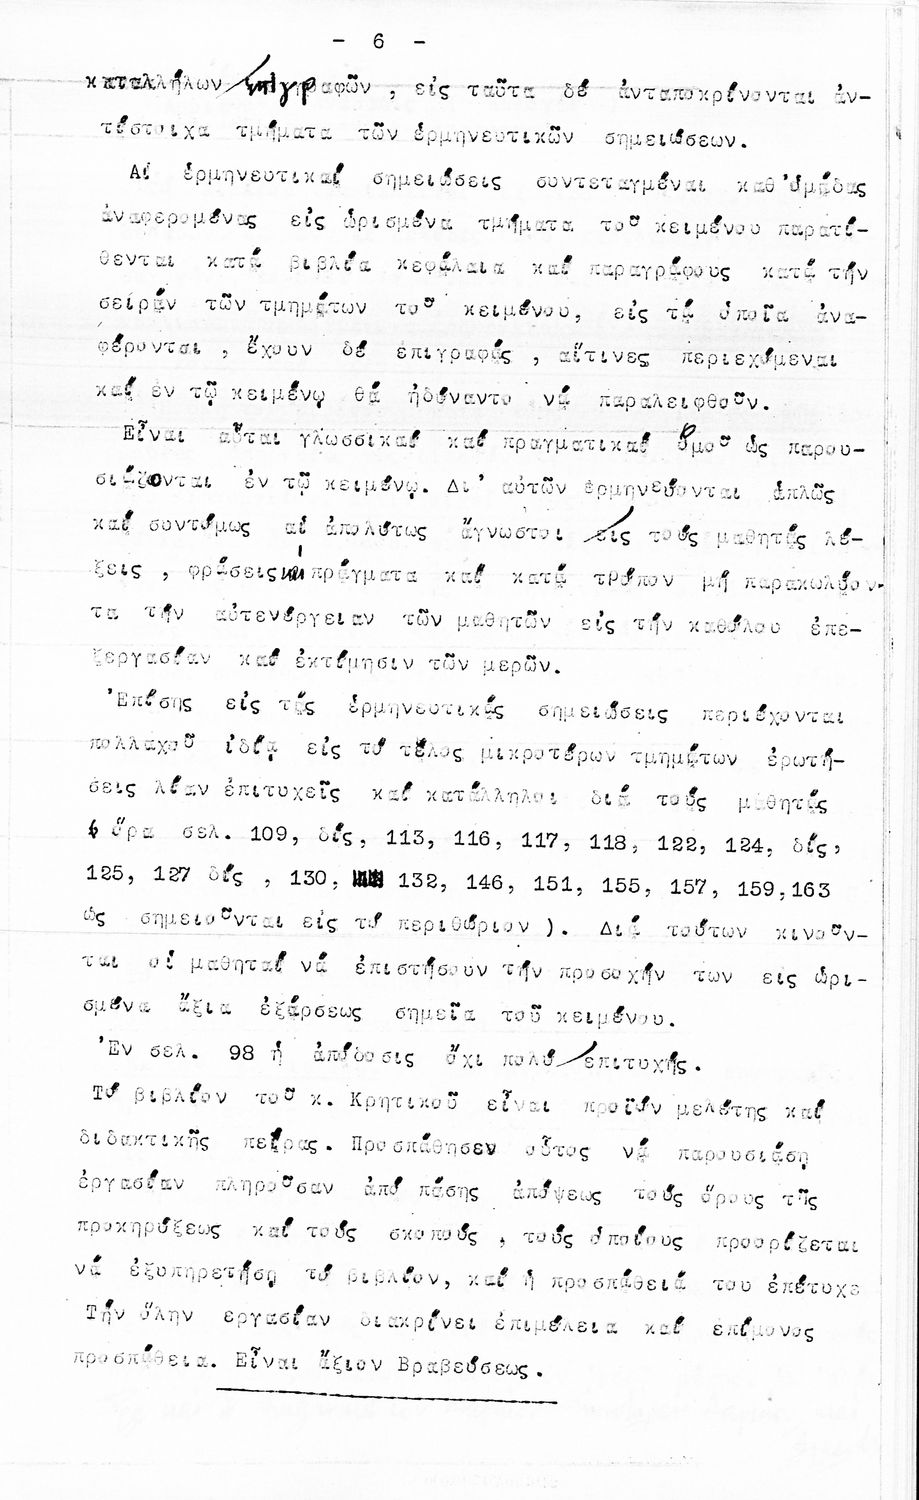 - 6 -
καταλλήλων ἐπιγραφῶν , εἰς ταῦτα δέ ἀνταποκρίνονται ἀν-
τίστοιχα τμήματα τῶν ἑρμηνευτικῶν σημειώσεων.
Αἱ ἑρμηνευτικαί σημειώσεις συντεταγμέναι καθ'ὁμάδας
ἀναφερομένας εἰς ὡρισμένα τμήματα τοῦ κειμένου παρατί-
θενται κατά βιβλία κεφάλαια καί παραγράφους κατά τήν
σειράν τῶν τμημάτων τοῦ κειμένου, εἰς τά ὁποῖα ἀνα-
φέρονται , ἔχουν δέ ἐπιγραφάς , αἵτινες περιεχόμεναι
καί ἐν τῷ κειμένῳ θά ἠδύναντο νά παραλειφθοῦν.
Εἶναι αὗται γλωσσικαί καί πραγματικαί ὁμοῦ ὡς παρου-
σιάζονται ἐν τῷ κειμένῳ. Δι' αὐτῶν ἑρμηνεύονται ἁπλῶς
καί συντόμως αἱ ἀπολύτως ἄγνωστοι εἰς τούς μαθητάς λέ-
ξεις , φράσεις καί πράγματα καί κατά τρόπον μή παρακωλύον-
τα τήν αὐτενέργειαν τῶν μαθητῶν εἰς τήν καθόλου ἐπε-
ξεργασίαν καί ἐκτίμησιν τῶν μερῶν.
Ἐπίσης εἰς τάς ἑρμηνευτικάς σημειώσεις περιέχονται
πολλαχοῦ ἰδίᾳ εἰς τό τέλος μικροτέρων τμημάτων ἐρωτή-
σεις λίαν ἐπιτυχεῖς καί κατάλληλοι διά τούς μαθητάς
( ὅρα σελ. 109, δίς, 113, 116, 117, 118, 122, 124, δίς,
125, 127 δίς , 130, 132, 146, 151, 155, 157, 159,163
ὡς σημειοῦνται εἰς τό περιθώριον ). Διά τούτων κινοῦν-
ται οἱ μαθηταί νά ἐπιστήσουν τήν προσοχήν των εις ὡρι-
σμένα ἄξια ἐξάρσεως σημεῖα τοῦ κειμένου.
Ἐν σελ. 98 ἡ ἀπόδοσις ὄχι πολύ ἐπιτυχής.
Τό βιβλίον τοῦ κ. Κρητικοῦ εἶναι προϊόν μελέτης καί
διδακτικῆς πείρας. Προσπάθησεν οὗτος νά παρουσιάσῃ
ἐργασίαν πληροῦσαν ἀπό πάσης ἀπόψεως τούς ὅρους τῆς
προκηρύξεως καί τούς σκοπούς , τούς ὁποίους προορίζεται
νά ἐξυπηρετήσῃ τό βιβλίον, καί ἡ προσπάθειά του ἐπέτυχε
Τήν ὅλην εργασίαν διακρίνει ἐπιμέλεια καί ἐπίμονος
προσπάθεια. Εἶναι ἄξιον Βραβεύσεως.